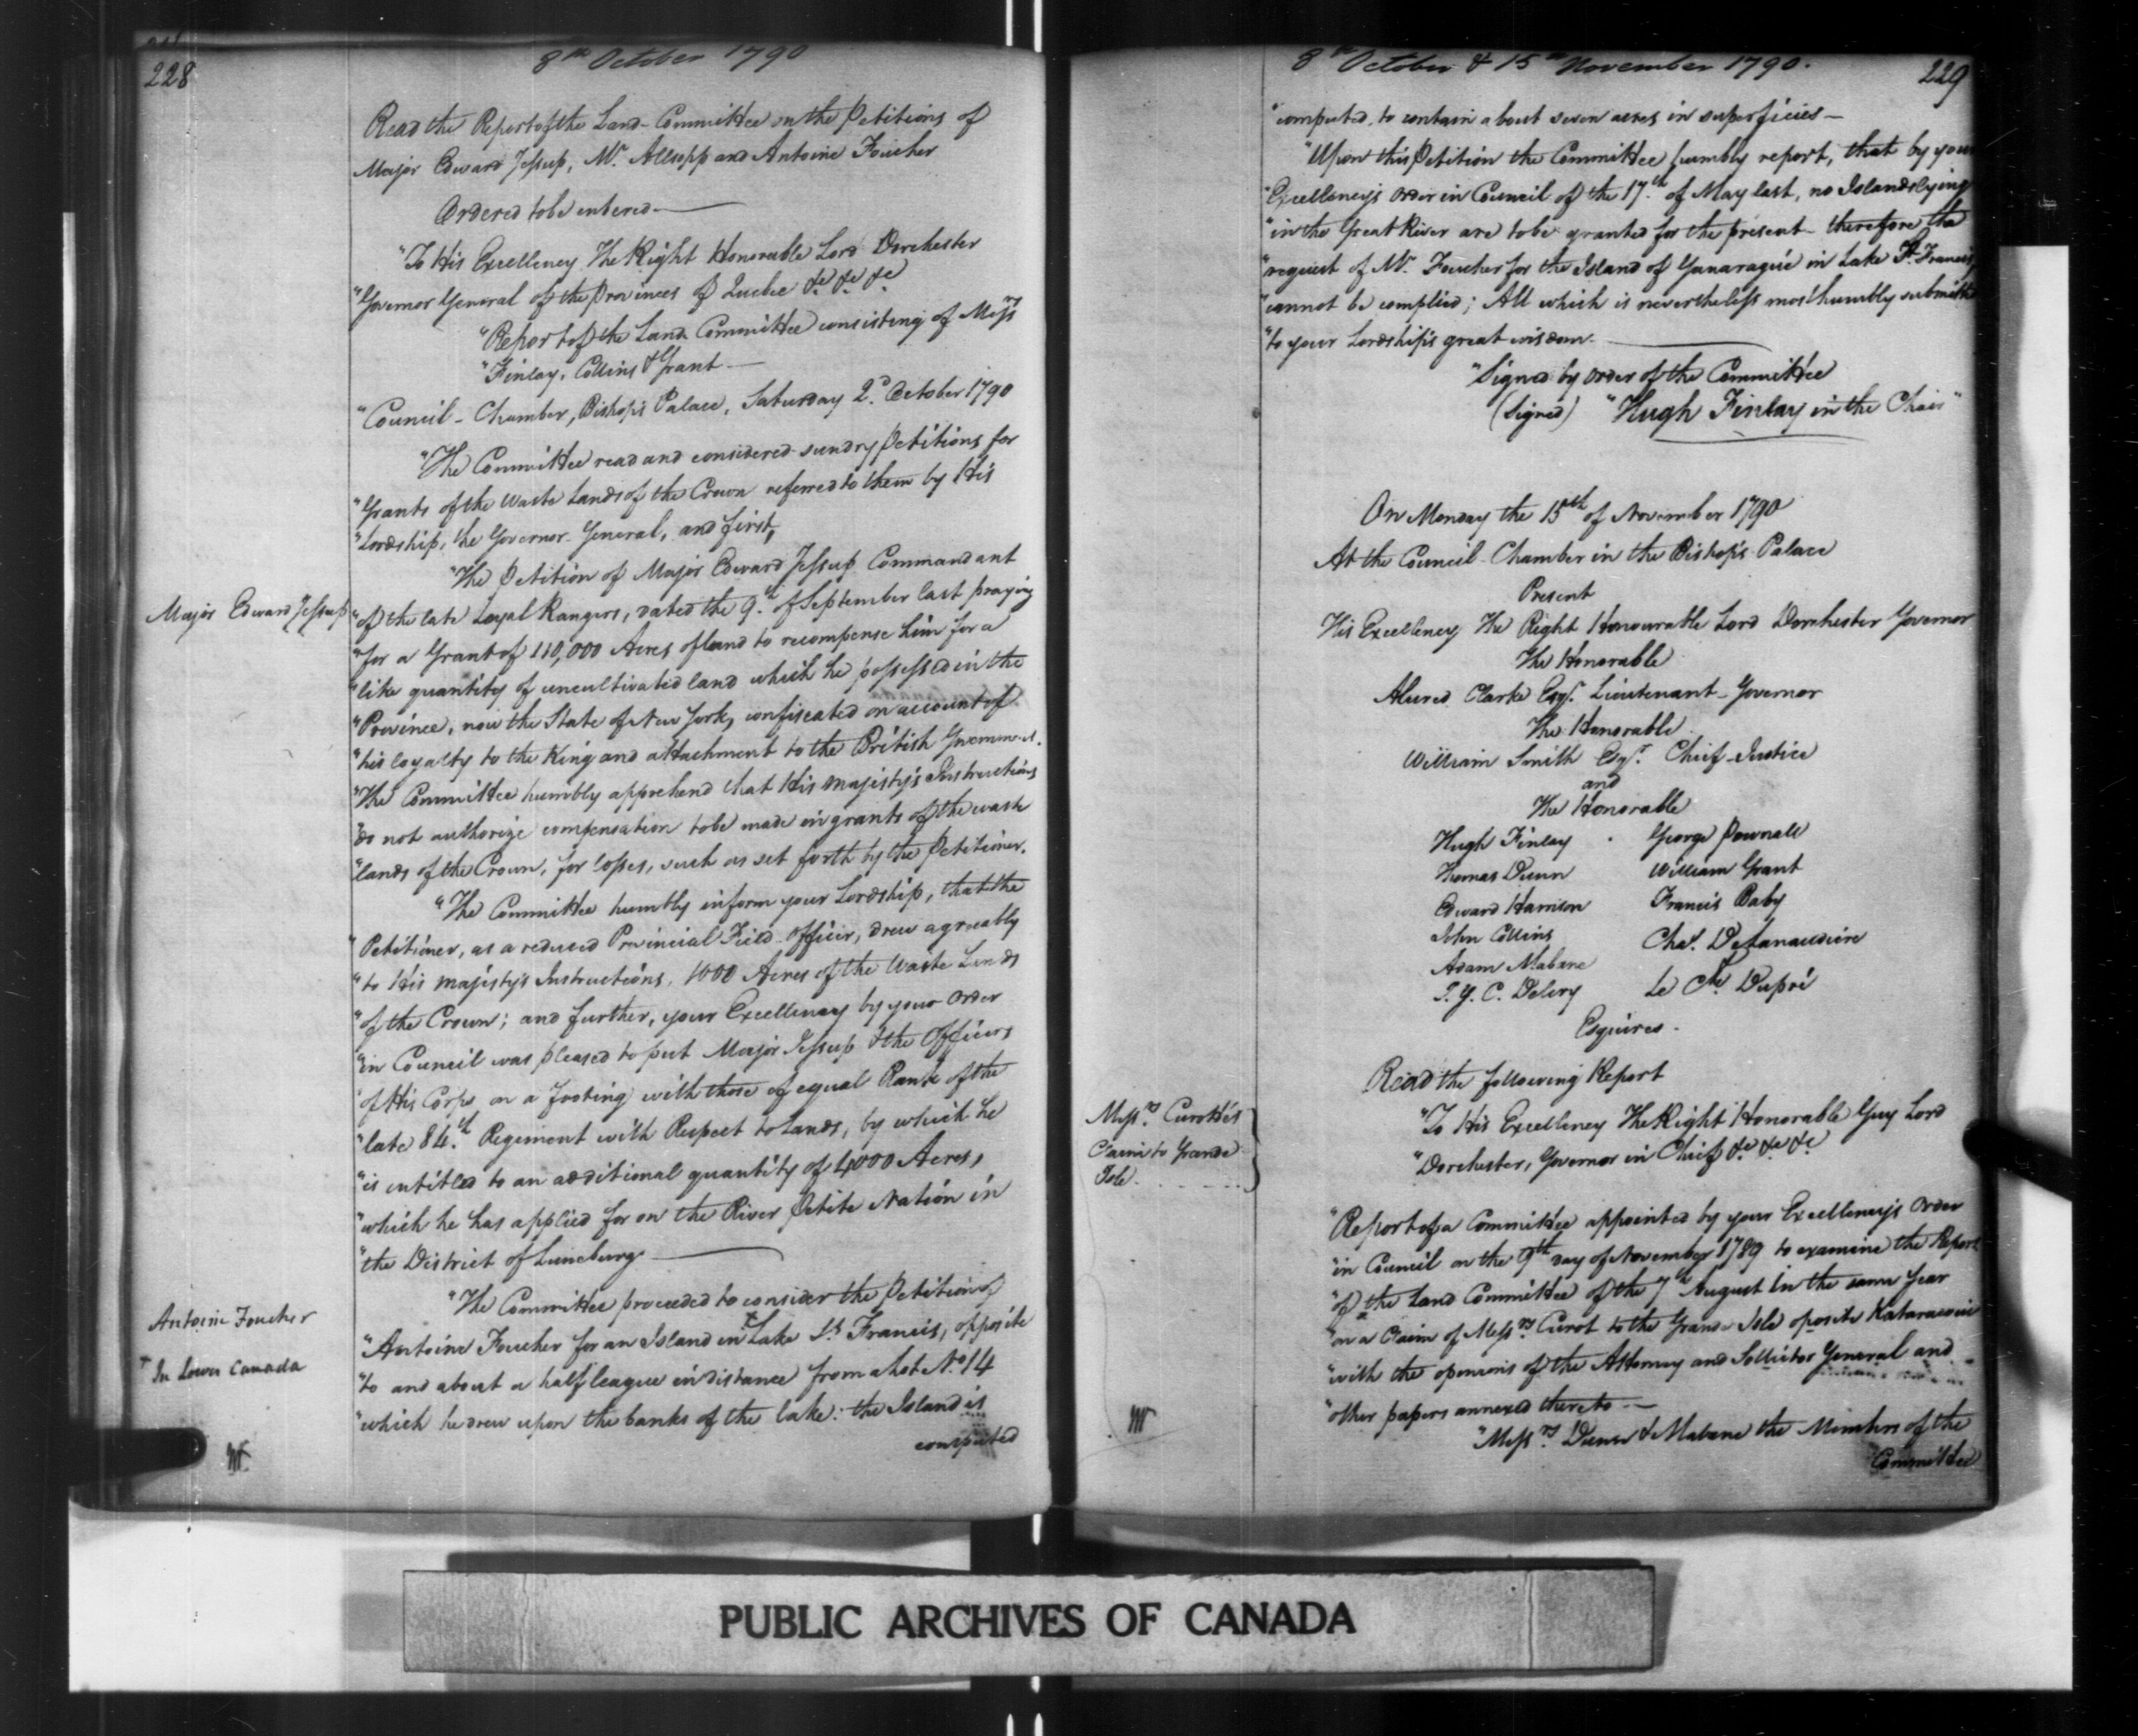 228
8th October 1790
Read the Report of the Land Committee on the Petitions of
Major Edward Jessup, Mr. Allsopp and Antoine Foucher
Ordered to be entered.—
"To His Excellency The Right Honorable Lord Dorchester
"Governor General of the Provinces of Quebec &c &c &c
"Report of the Land Committee consisting of Messrs
"Finlay, Collins & Grant—
"Council-Chamber, Bishop's Palace, Saturday 2d. October 1790
"The Committee read and considered sundry Petitions for
"Grants of the Waste Lands of the Crown referred to them by His
"Lordship, the Governor General, and first,
"The Petition of Major Edward Jessup Commandant
Major Edward Jessup
"of the late Loyal Rangers, dated the 9th. of September last praying
"for a Grant of 110,000 Acres of land to recompense him for a
"like quantity of uncultivated land which he possessed in the
"Province, now the State of New York, confiscated on account of
"his loyalty to the King and attachment to the British Government.
"The Committee humbly apprehend that His Majesty's Instructions
"do not authorize compensation to be made in grants of the waste
"lands of the Crown, for losses, such as set forth by the Petitioner.
"The Committee humbly inform your Lordship, that the
"Petitioner, as a reduced Provincial Field-Officer, drew agreeably
"to His Majesty's Instructions, 1000 Acres of the Waste Lands
"of the Crown; and further, your Excellency by your Order
"in Council was pleased to put Major Jessup & the Officers
"of His Corps on a footing with those of equal Rank of the
"late 84th. Regiment with Respect to Lands, by which he
"is entitled to an additional quantity of 4000 Acres,
"which he has applied for on the River Petite Nation in
"the District of Luneburg.—
"The Committee proceeded to consider the Petition of
Antoine Foucher
"Antoine Foucher for an Island in + Lake St. Francis, opposite
+ In Lower Canada
"to and about a half league in distance from a Lot No. 14
"which he drew upon the banks of the lake: the Island is
computed
8th October & 15th November 1790.
229
"computed, to contain about seven acres in superficies—
"Upon this Petition the Committee humbly report, that by your
"Excellency's Order in Council of the 17th. of May last, no Islands lying
"in the Great River are to be granted for the present—therefore the
"request of Mr. Foucher for the Island of Yanaragué in Lake St. Francis,
"cannot be complied; All which is nevertheless most humbly submitted
"to your Lordship's great wisdom.—
"Signed by order of the Committee
(Signed) "Hugh Finlay in the Chair"
On Monday the 15th of November 1790
At the Council-Chamber in the Bishop's Palace
Present
His Excellency The Right Honourable Lord Dorchester Governor
The Honorable
Alured Clarke Esqr. Lieutenant-Governor
The Honorable
William Smith Esqr. Chief-Justice
and
The Honorable
Hugh Finlay George Pownall
Thomas Dunn William Grant
Edward Harrison Francis Baby
John Collins Chas. DeLanaudiere
Adam Mabane Le Cte. Dupré
J. G. C. Delery
Esquires.
Read the following Report
"To His Excellency The Right Honorable Guy Lord
"Dorchester, Governor in Chief &c &c &c
Messrs. Curotte's
Claim to Grande
Isle.
"Report of a Committee appointed by your Excellency's Order
"in Council on the 9th day of November 1789 to examine the Report
"of the Land Committee of the 7th August in the same Year
"on a Claim of Messrs. Curot to the Grande Isle oposite Kataracoui
"with the openions of the Attorney and Sollicitor General and
"other papers annexed thereto.—
"Messrs. Dunn & Mabane the Members of the
Committee
PUBLIC ARCHIVES OF CANADA